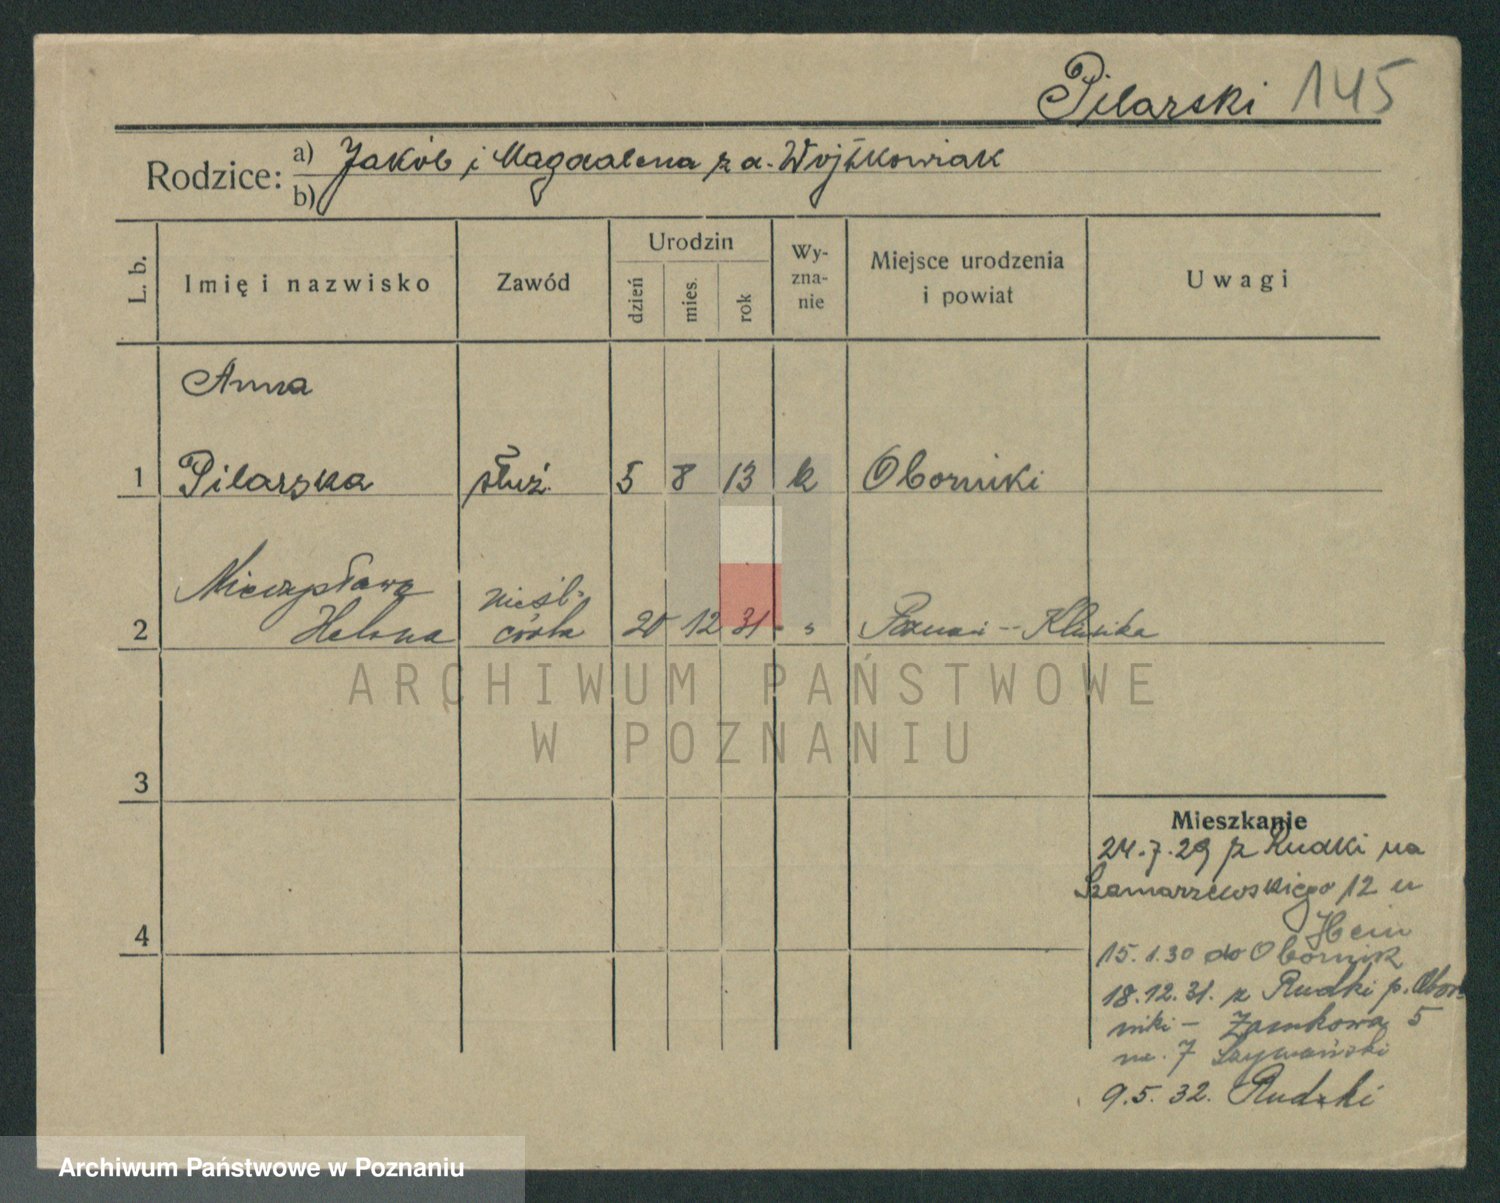 Pilarski 145
Rodzice: a) Jakób i Magdalena z d. Wojtkowiak
b)
L. b.
Imię i nazwisko
Zawód
Urodzin
dzień
mies.
rok
Wy-
zna-
nie
Miejsce urodzenia
i powiat
Uwagi
Anna
1 Pilarska służ. 5 8 13 k Oborniki
Mieczysława nieśl-
2 Helena córka 20 12 31 - " Poznań - Klinika
ARCHIWUM PAŃSTWOWE
W POZNANIU
3
4
Mieszkanie
24.7.29 z Rudki na
Szamarzewskiego 12 u
Hein
15.1.30 do Obornik
18.12.31. z Rudki p. Obor
niki - Zamkowa 5
m. 7 Szymański
9.5.32. Rudzki
Archiwum Państwowe w Poznaniu